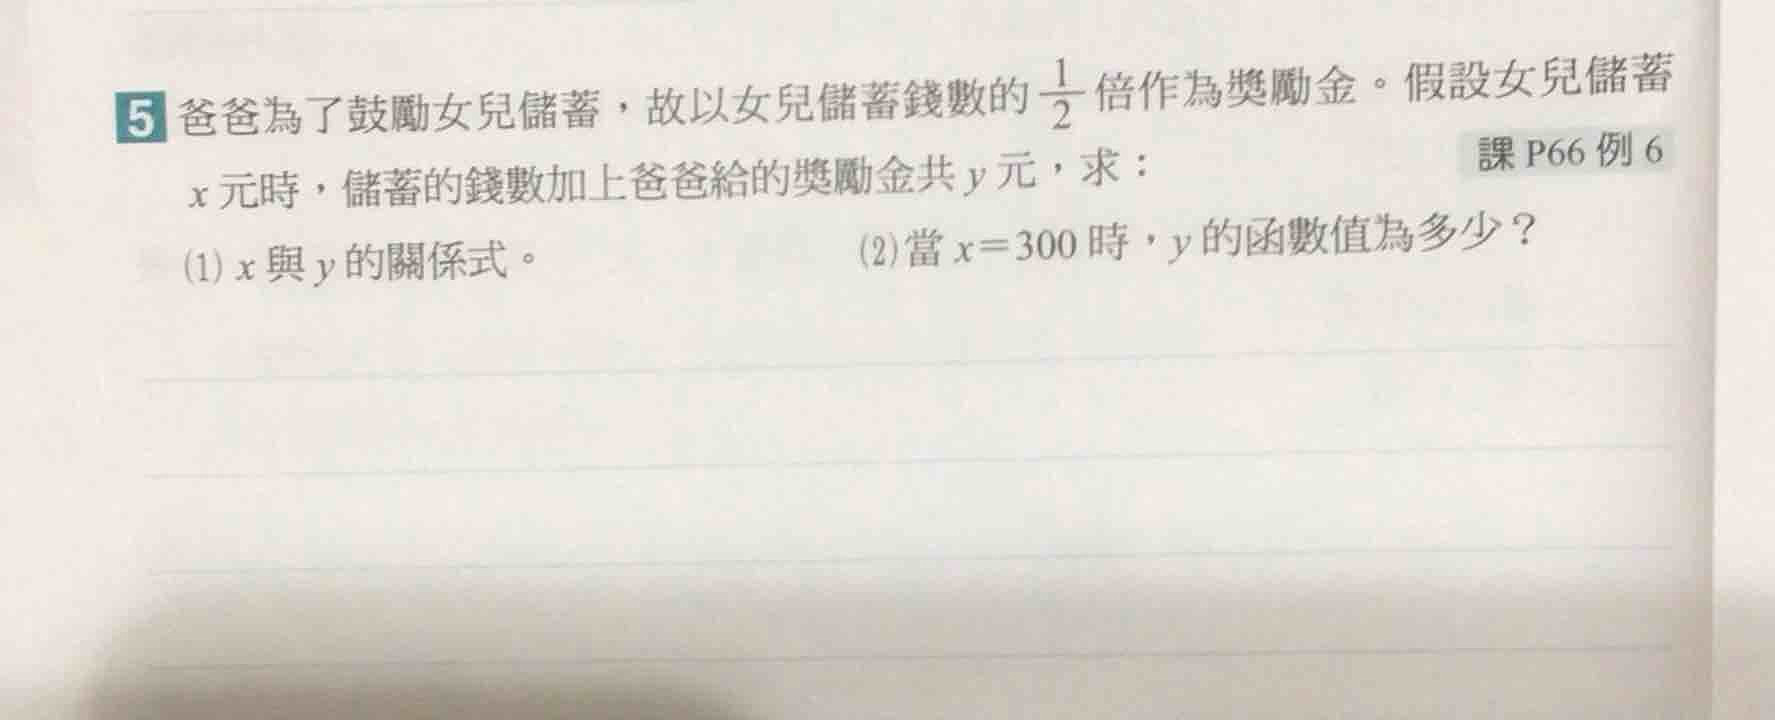 5 爸爸為了鼓勵女兒儲蓄，故以女兒儲蓄錢數的 1/2 倍作為獎勵金。假設女兒儲蓄
x 元時，儲蓄的錢數加上爸爸給的獎勵金共 y 元，求：
課 P66 例 6
(1) x 與 y 的關係式。
(2) 當 x＝300 時，y 的函數值為多少？